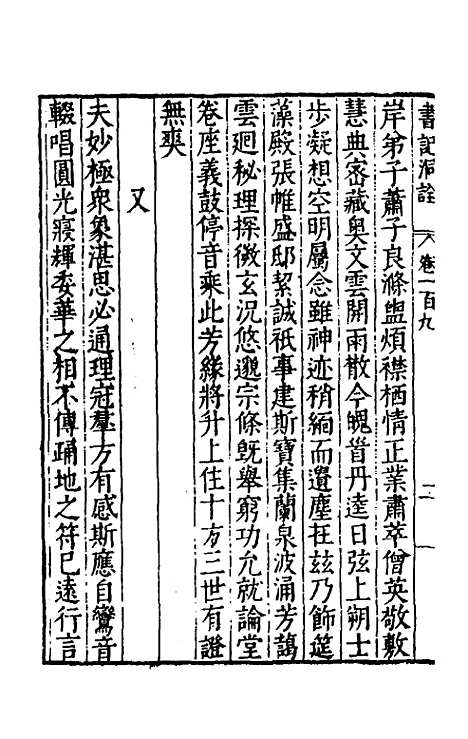 書記洞詮 卷一百九 二
岸弟子蕭子良滌盥煩襟栖情正業肅萃僧英敬敷
慧典密藏奧文雲開雨散今魄首丹逵日弦上朔士
步凝想空明屬念雖神迹稍緬而遺塵在兹乃飾筵
藻殿張帷盛邸絜誠祇事建斯寶集蘭泉波涌芳藹
雲迴秘理探微玄況悠邈宗條旣舉窮功允就論堂
卷座義鼓停音乘此芳緣將升上住十方三世有證
無爽
又
夫妙極衆象湛思必通理冠羣方有感斯應自鸞音
輟唱圓光寢輝委華之相不傳踊地之符已遠行言